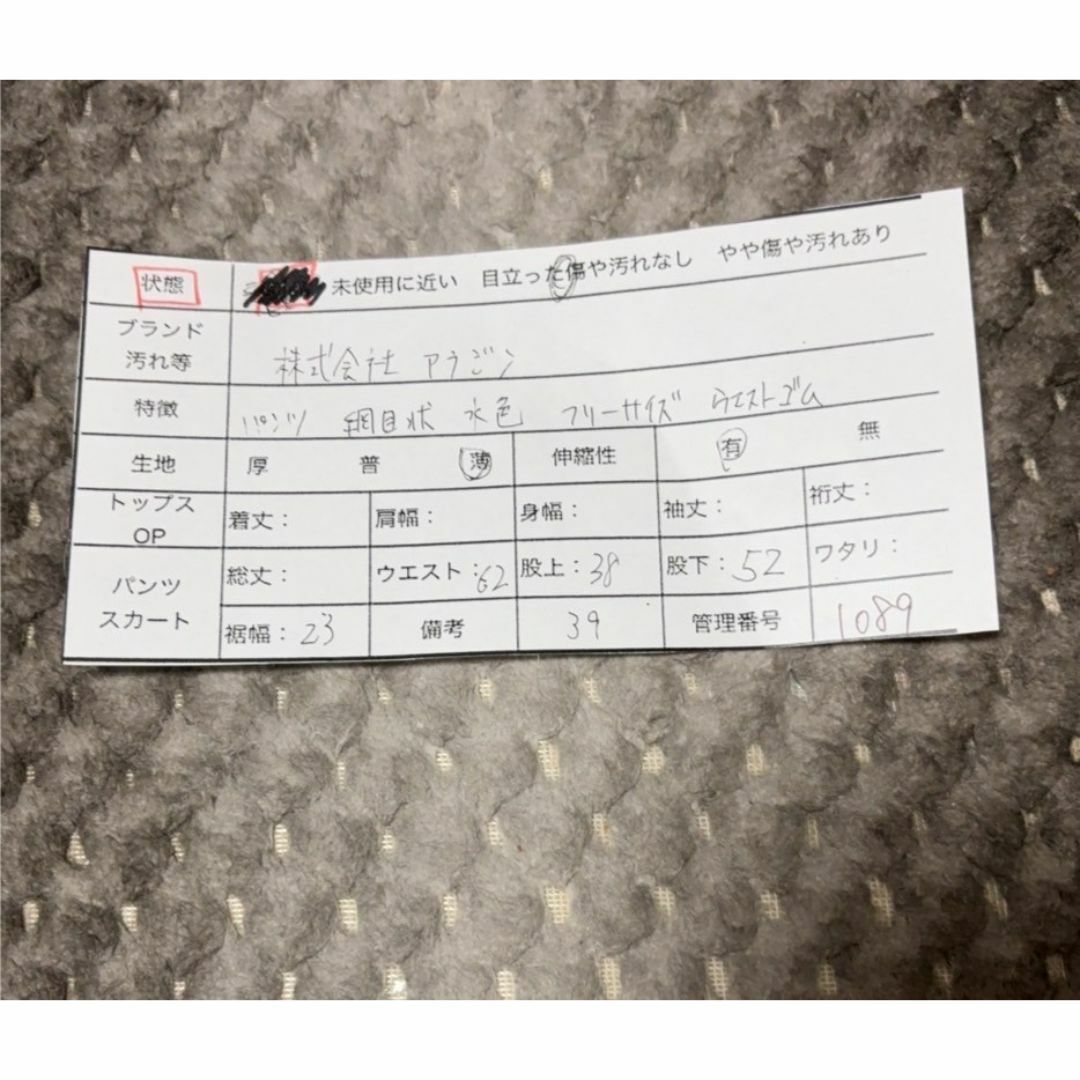 状態 未使用に近い 目立った傷や汚れなし やや傷や汚れあり
ブランド
汚れ等 株式会社 アラジン
特徴 パンツ 網目状 水色 フリーサイズ ウエストゴム
生地 厚 普 薄 伸縮性 有 無
トップス
OP 着丈： 肩幅： 身幅： 袖丈： 裄丈：
パンツ
スカート
総丈： ウエスト：62 股上：38 股下：52 ワタリ：
裾幅：23 備考 39 管理番号 1089